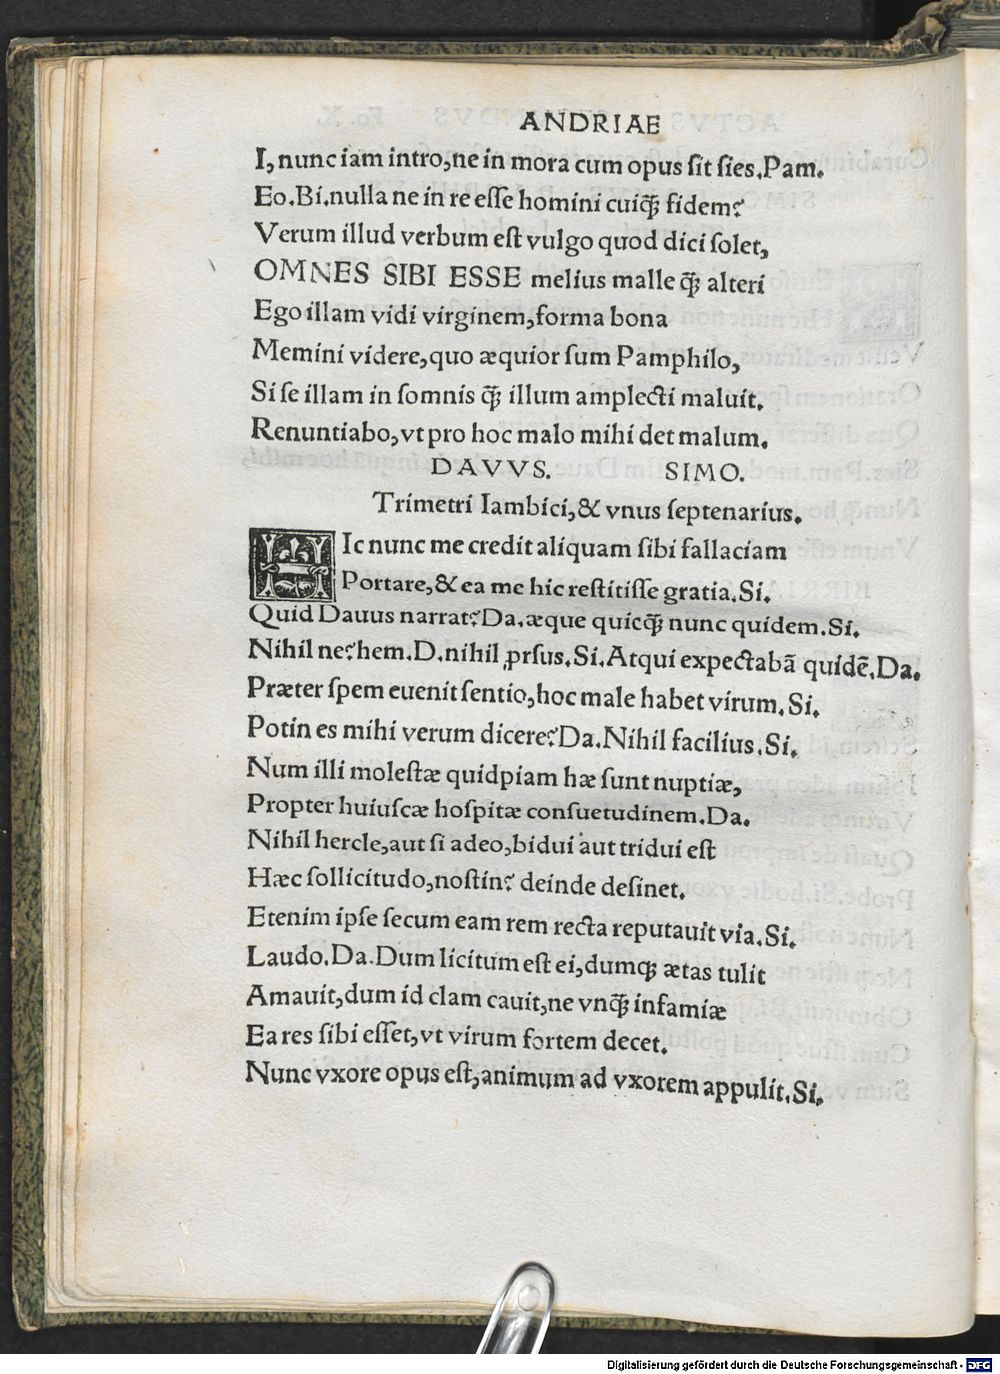 ANDRIAE
I, nunc iam intro, ne in mora cum opus sit sies. Pam.
Eo. Bi. nulla ne in re esse homini cuiq̃ fidem?
Verum illud verbum est vulgo quod dici solet,
OMNES SIBI ESSE melius malle q̃ alteri
Ego illam vidi virginem, forma bona
Memini videre, quo æquior sum Pamphilo,
Si se illam in somnis q̃ illum amplecti maluit.
Renuntiabo, vt pro hoc malo mihi det malum.
DAVVS. SIMO.
Trimetri Iambici, & vnus septenarius.
HIc nunc me credit aliquam sibi fallaciam
Portare, & ea me hic restitisse gratia. Si.
Quid Dauus narrat? Da. æque quicq̃ nunc quidem. Si.
Nihil ne? hem. D. nihil ꝓrsus. Si. Atqui expectabã quidẽ. Da.
Præter spem euenit sentio, hoc male habet virum. Si.
Potin es mihi verum dicere? Da. Nihil facilius. Si.
Num illi molestæ quidpiam hæ sunt nuptiæ,
Propter huiuscæ hospitæ consuetudinem. Da.
Nihil hercle, aut si adeo, bidui aut tridui est
Hæc sollicitudo, nostin? deinde desinet.
Etenim ipse secum eam rem recta reputauit via. Si.
Laudo. Da. Dum licitum est ei, dumq; ætas tulit
Amauit, dum id clam cauit, ne vnq̃ infamiæ
Ea res sibi esset, vt virum fortem decet.
Nunc vxore opus est, animum ad vxorem appulit. Si.
Digitalisierung gefördert durch die Deutsche Forschungsgemeinschaft - DFG